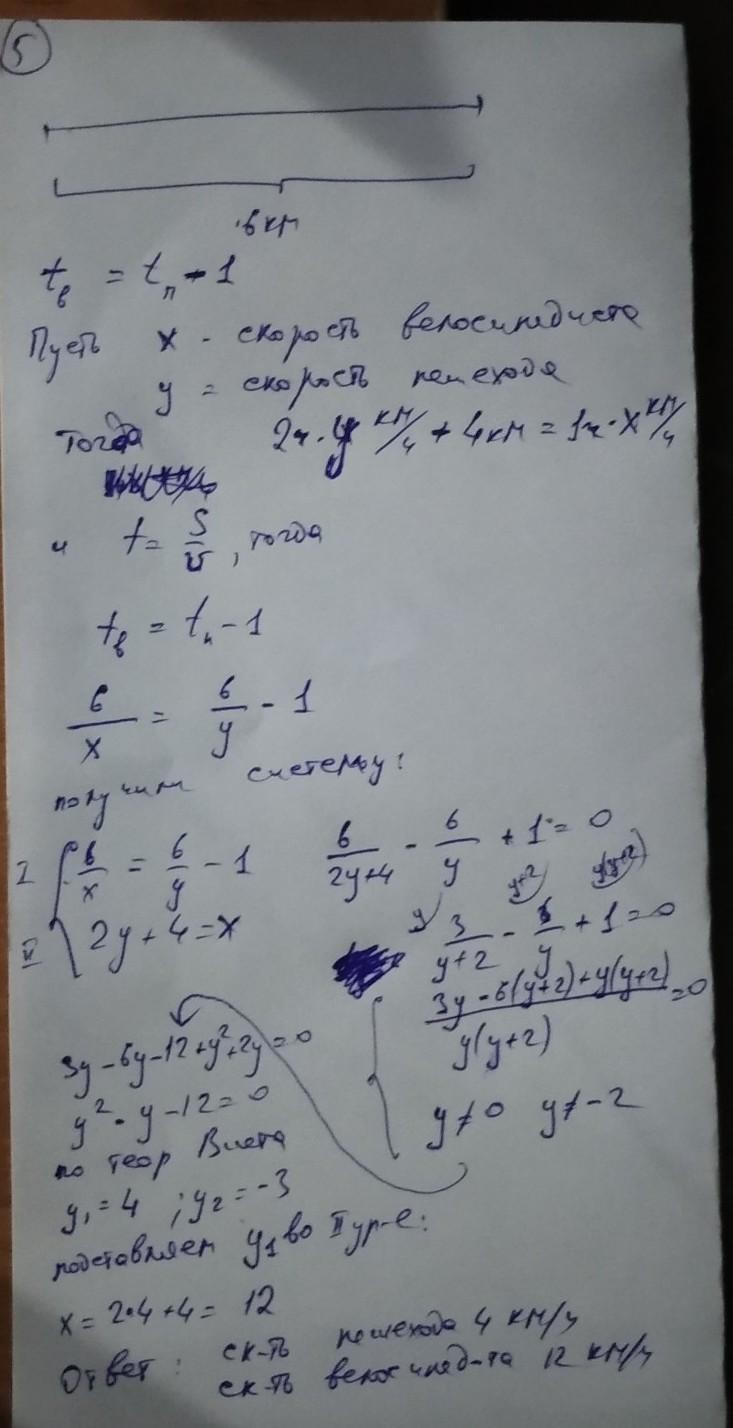 5
6 км
t_в = t_п - 1
Пусть x - скорость велосипедиста
y = скорость пешехода
Тогда 2ч · y км/ч + 4 км = 1ч · x км/ч
и t = S/v, тогда
t_в = t_п - 1
6/x = 6/y - 1
получим систему:
I { 6/x = 6/y - 1
II { 2y + 4 = x
6/(2y+4) - 6/y + 1 = 0
y y+2 y(y+2)
3/(y+2) - 6/y + 1 = 0
(3y - 6(y+2) + y(y+2))/(y(y+2)) = 0
y ≠ 0 y ≠ -2
3y - 6y - 12 + y² + 2y = 0
y² - y - 12 = 0
по теор Виета
y₁ = 4 ; y₂ = -3
подставляем y₁ во II ур-е:
x = 2·4 + 4 = 12
Ответ: ск-ть пешехода 4 км/ч
ск-ть велосипед-та 12 км/ч